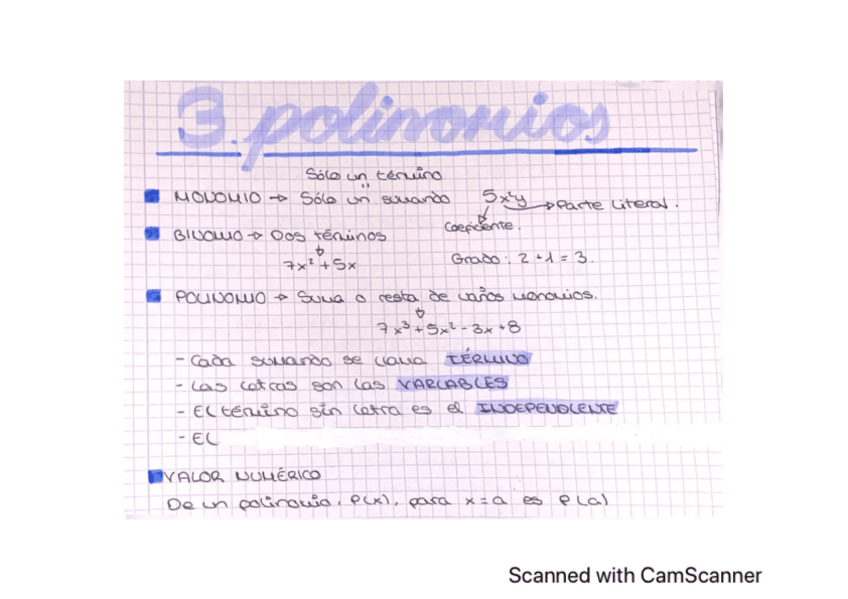 3. polinomios
Sólo un término
"
MONOMIO → Sólo un sumando 5x²y → Parte Literal.
Coeficiente.
BINOMIO → Dos términos
7x² + 5x Grado: 2 + 1 = 3.
POLINOMIO → Suma o resta de varios monomios.
7x³ + 5x² - 3x + 8
- Cada sumando se llama TÉRMINO
- Las letras son las VARIABLES
- El término sin letra es el INDEPENDIENTE
- El
VALOR NUMÉRICO
De un polinomio, P(x), para x = a es P(a)
Scanned with CamScanner